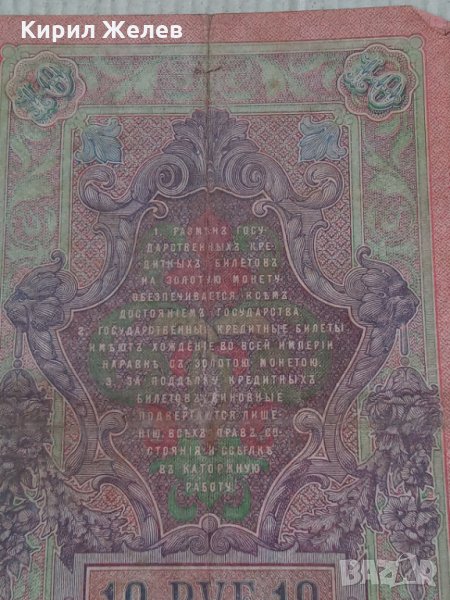 Кирил Желев
10 10
1. РАЗМѢНЪ ГОСУ-
ДАРСТВЕННЫХЪ КРЕ-
ДИТНЫХЪ БИЛЕТОВЪ
НА ЗОЛОТУЮ МОНЕТУ
ОБЕЗПЕЧИВАЕТСЯ ВСѢМЪ
ДОСТОЯНІЕМЪ ГОСУДАРСТВА.
2. ГОСУДАРСТВЕННЫЕ КРЕДИТНЫЕ БИЛЕТЫ
ИМѢЮТЪ ХОЖДЕНІЕ ВО ВСЕЙ ИМПЕРІИ
НАРАВНѢ СЪ ЗОЛОТОЮ МОНЕТОЮ.
3. ЗА ПОДДѢЛКУ КРЕДИТНЫХЪ
БИЛЕТОВЪ ВИНОВНЫЕ
ПОДВЕРГАЮТСЯ ЛИШЕ-
НІЮ ВСѢХЪ ПРАВЪ СО-
СТОЯНІЯ И ССЫЛКѢ
ВЪ КАТОРЖНУЮ
РАБОТУ.
10 РУБ 10
BAZAR